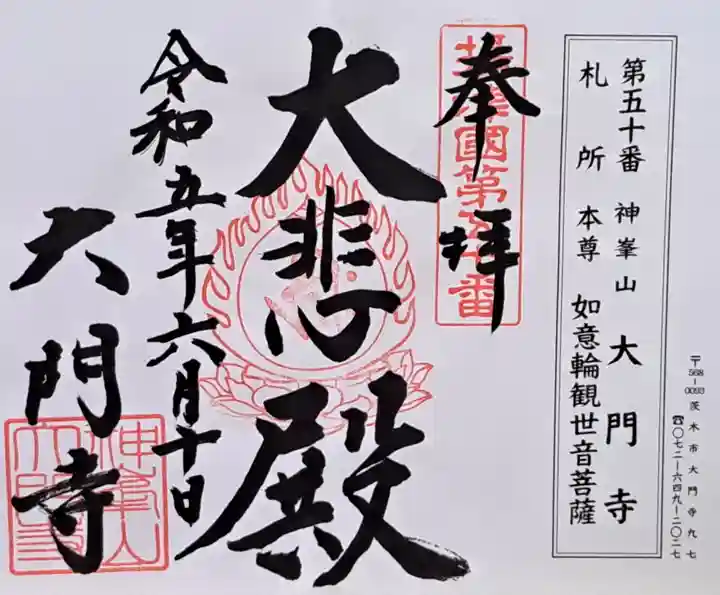 第五十番 神峯山 大門寺
札所 本尊 如意輪観世音菩薩
〒568-0093 茨木市大門寺九七
☎〇七二-六四九-二〇二七
奉拝
大悲殿
令和五年六月十日
大門寺
神峯山
大門寺